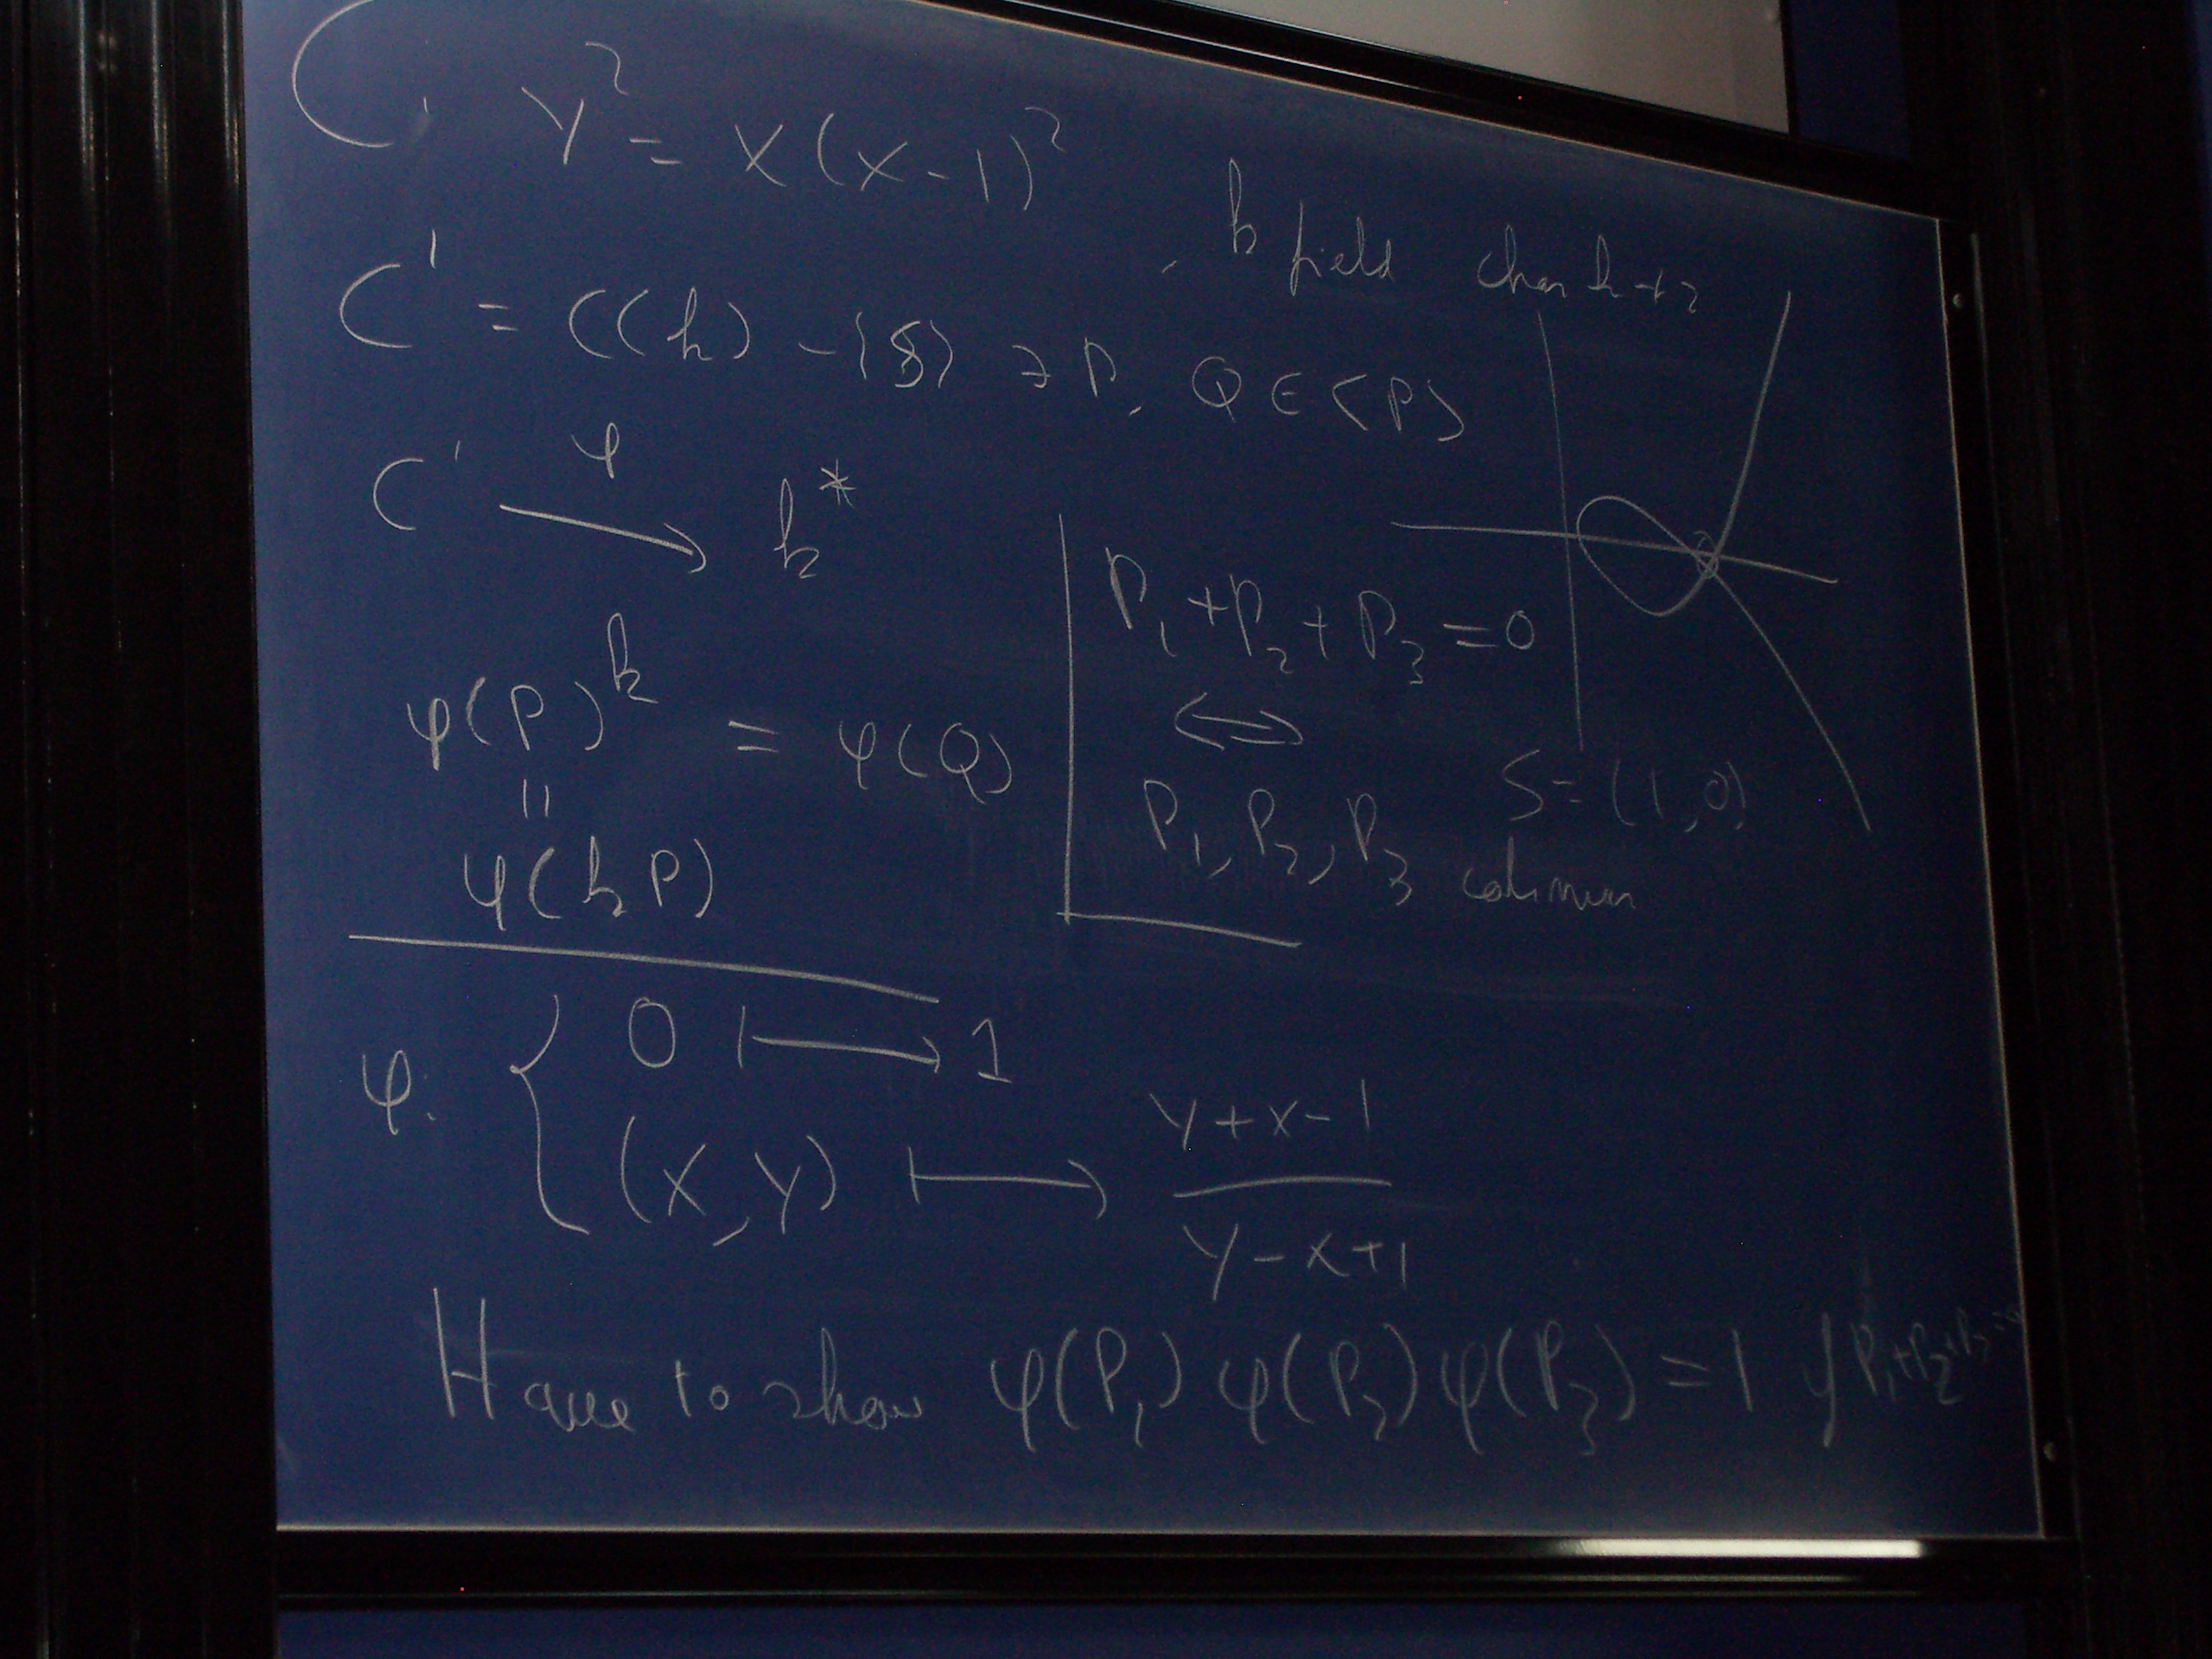 C: y² = x(x-1)²
, k field char k ≠ 2
C' = C(k) - {S} ∋ P, Q ∈ <P>
C' →^φ k*
φ(P)^k = φ(Q)
||
φ(kP)
P₁ + P₂ + P₃ = 0
⟺
P₁, P₂, P₃ colinear
S = (1,0)
φ: { 0 ↦ 1
(x,y) ↦ (y+x-1)/(y-x+1)
Have to show φ(P₁) φ(P₂) φ(P₃) = 1 if P₁+P₂+P₃=0